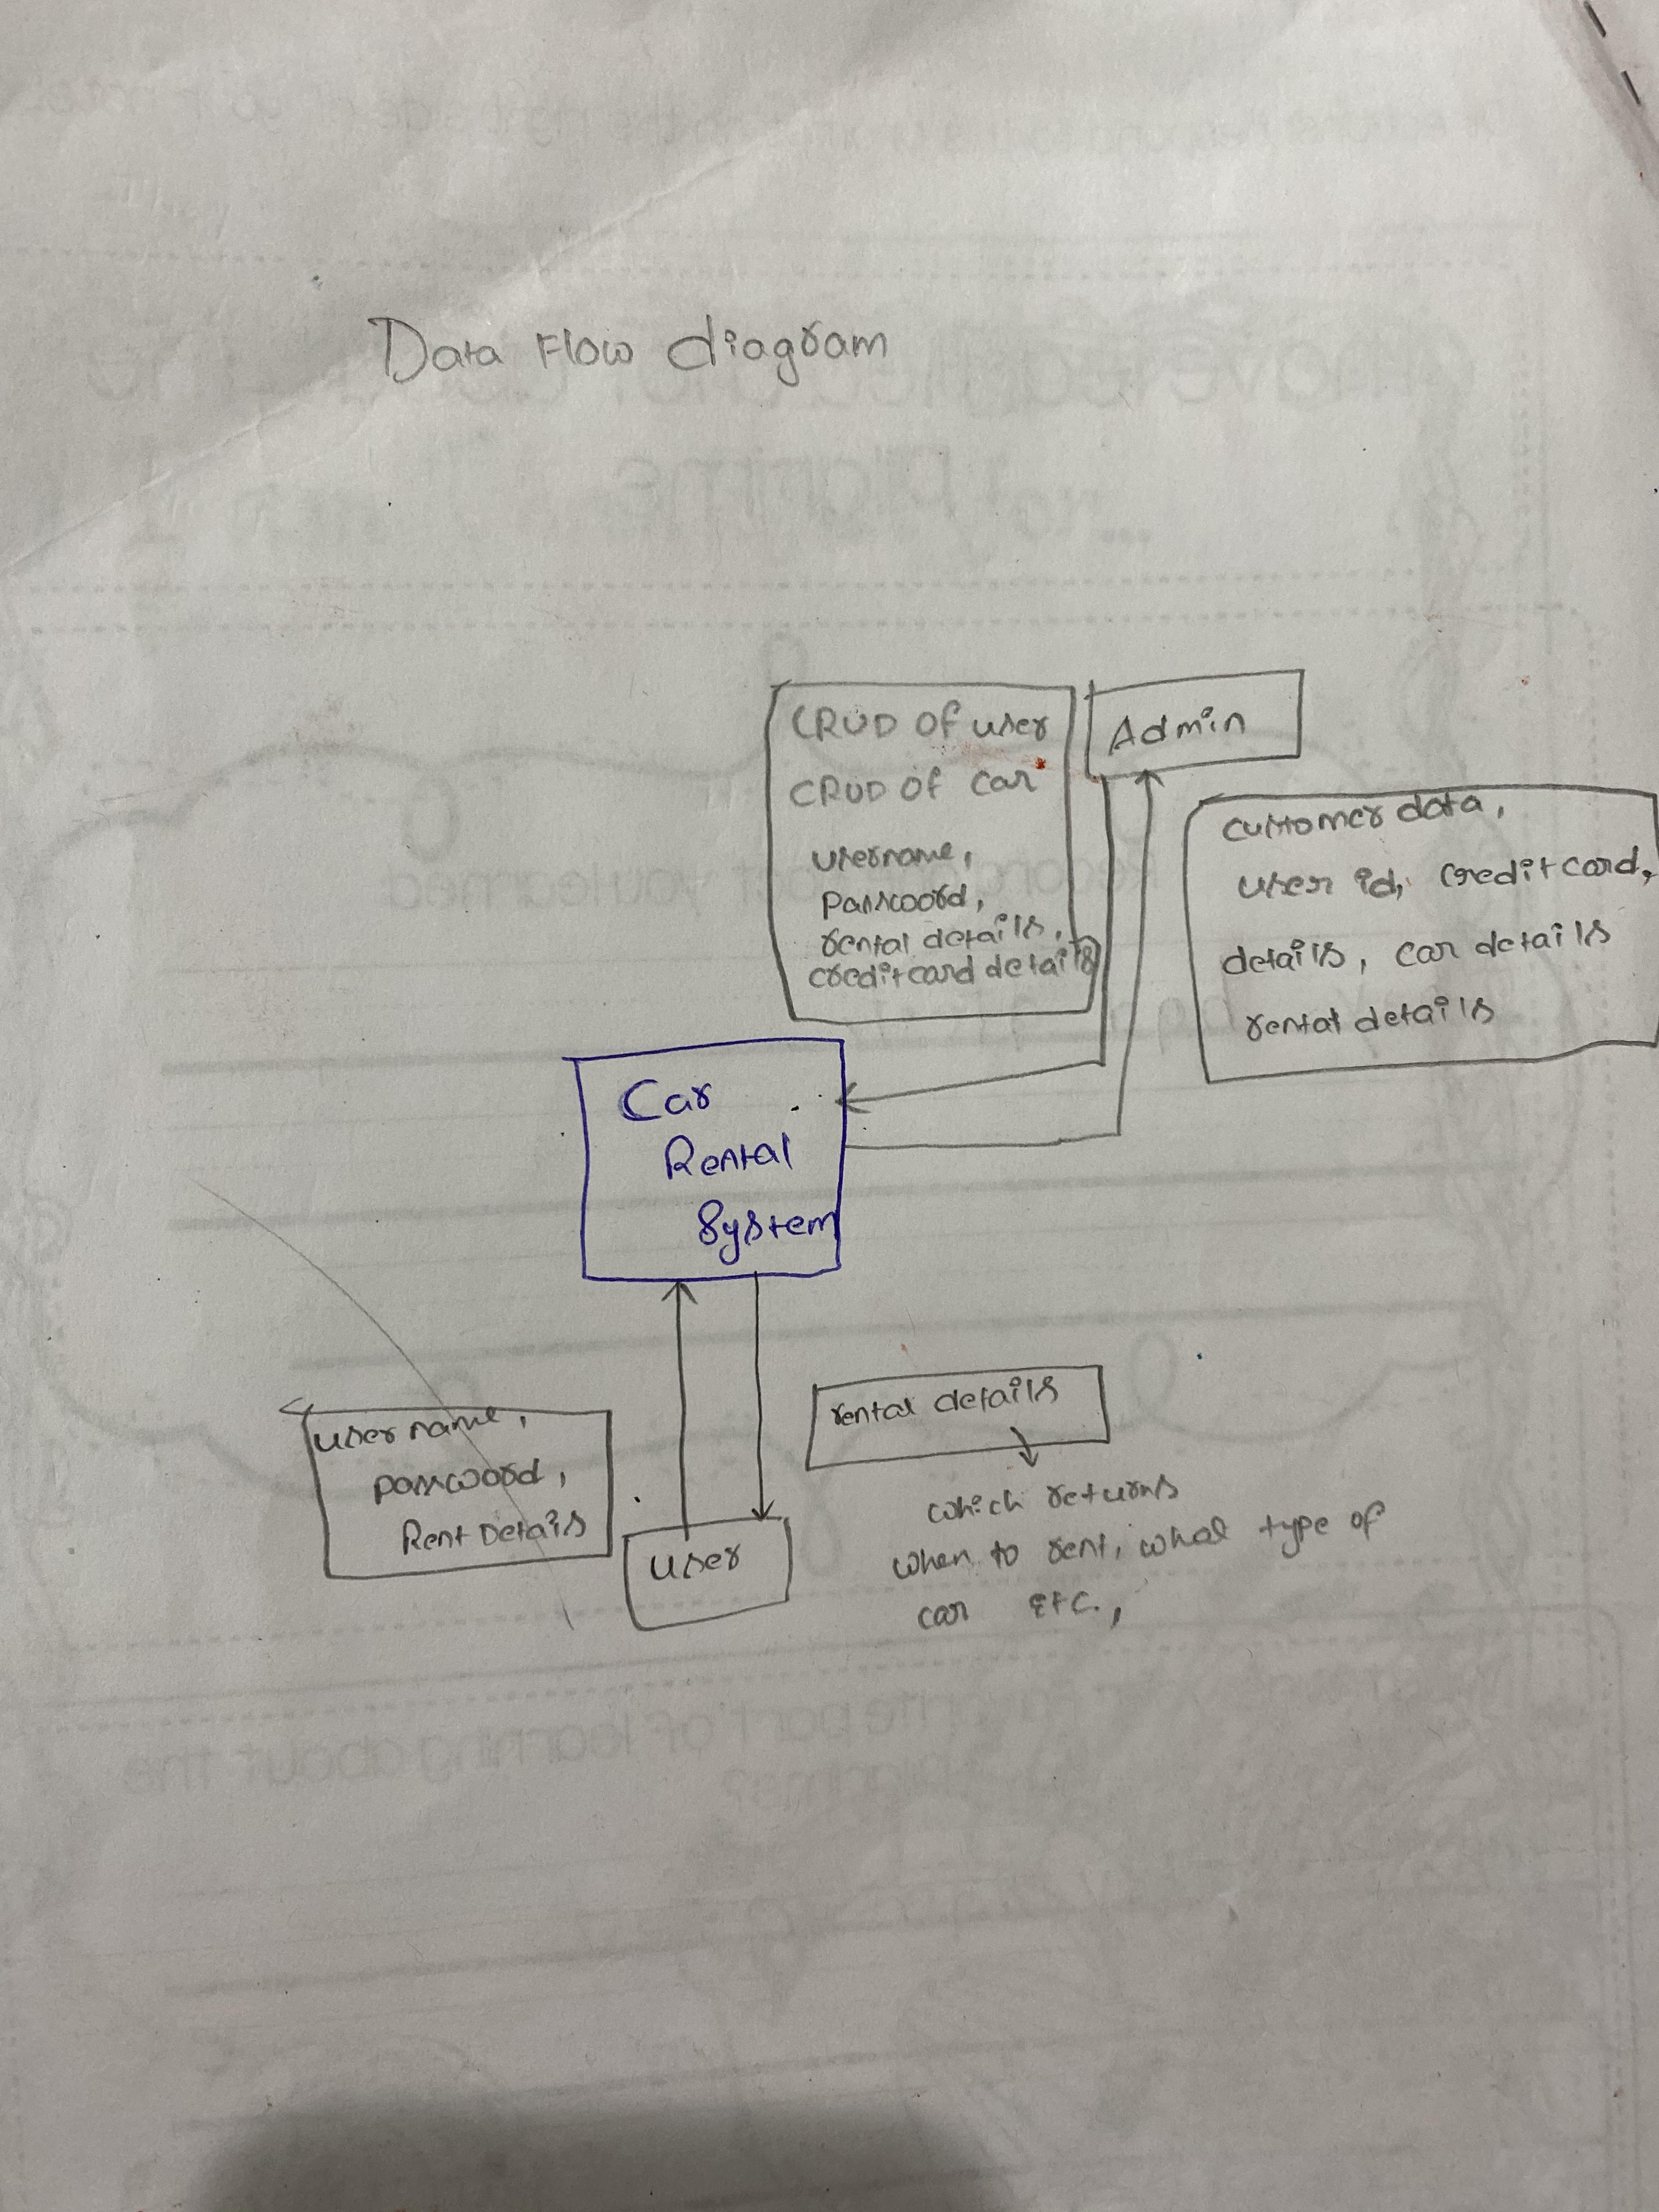 Data Flow diagram
CRUD OF user
CRUD OF car
username,
password,
rental details,
creditcard details
Admin
customer data,
user id, credit card,
details, car details
rental details
Car
Rental
System
username,
password,
Rent Details
user
rental details
which returns
when to rent, what type of
car etc.,